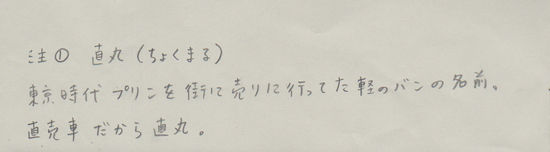 注① 直丸(ちょくまる)
東京時代プリンを街に売りに行ってた軽のバンの名前。
直売車だから直丸。